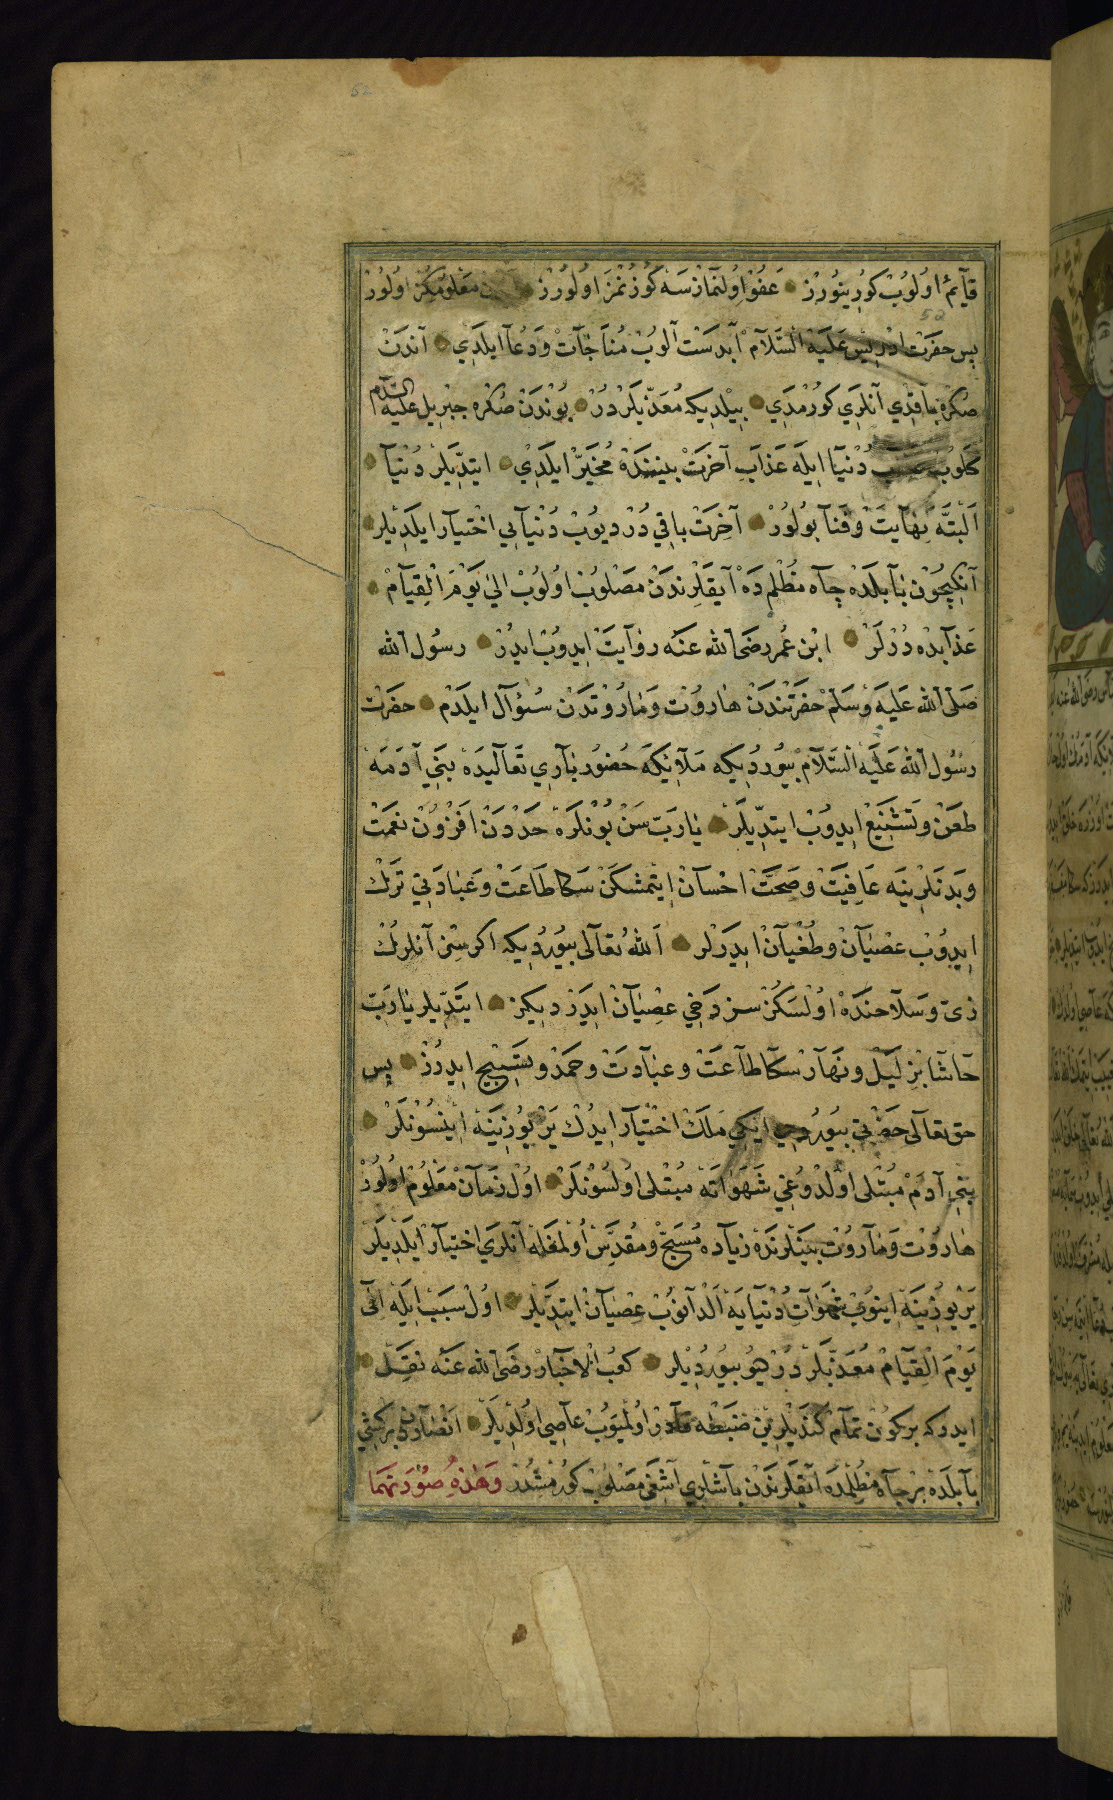 52
قآيم اولوب كورينورز عفو اولنمازسه كوزنمز اولورز معلومكز اولور
52
پس حضرت ادريس عليه السلام آبدست آلوب مناجات ودعا ايلدي آندن
صكره باقدي آنلري كورمدي بيلديكه معذبلردر بوندن صكره جبريل عليه السلام
كلوب دنيا ايله عذاب آخرت بيننده مخير ايلدي ايتديلر دنيا
البته نهايت وفنا بولور آخرت باقي در ديوب دنيايي اختيار ايلديلر
آنكچون بابلده چاه مظلم ده آيقلرندن مصلوب اولوب الى يوم القيام
عذابده درلر ابن عمر رضى الله عنه روايت ايدوب ايدر رسول الله
صلى الله عليه وسلم حضرتندن هاروت وماروتدن سؤال ايلدم حضرت
رسول الله عليه السلام بيورديكه ملائكه حضور باري تعاليده بني آدمه
طعن وتشنيع ايدوب ايتديلر يا رب سن بونلره حددن افزون نعمت
وبدنلرينه عافيت وصحت احسان ايتمشكن سكا طاعت وعبادتي ترك
ايدوب عصيان وطغيان ايدرلر الله تعالى بيورديكه اكر سز آنلرك
زى وسلاحنده اولسكز سز دخي عصيان ايدرديكز ايتديلر يا رب
حاشا بز ليل ونهار سكا طاعت وعبادت وحمد وتسبيح ايدرز پس
حق تعالى حضرتي بيوردي ايكي ملك اختيار ايدك ير يوزينه اينسونلر
بني آدم مبتلى اولدوغي شهواته مبتلى اولسونلر اول زمان معلوم اولور
هاروت وماروت بينلرنده زياده مسبح ومقدس اولمغله آنلري اختيار ايلديلر
ير يوزينه اينوب شهوات دنيايه الدانوب عصيان ايتديلر اول سبب ايله الى
يوم القيام معذبلر در ديو بيورديلر كعب الاخبار رضى الله عنه نقل
ايدر كه بر كون تمام كنديلرين ضبطه قادر اولميوب عاصي اولديلر انصاردن بر كشي
بابلده بر چاه مظلمده آيقلرندن باشلري آشغى مصلوب كورمشدر وهذه صورتهما